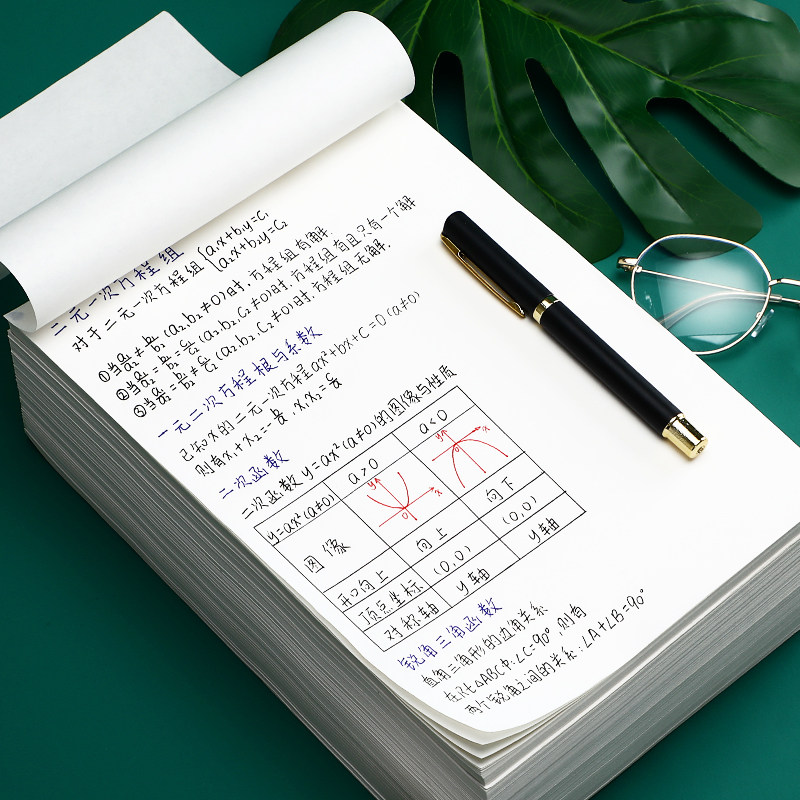 二元一次方程组
对于二元一次方程组{a₁x+b₁y=c₁
a₂x+b₂y=c₂
①当a₁/a₂≠b₁/b₂(a₂,b₂≠0)时,方程组有且只有一个解
②当a₁/a₂=b₁/b₂=c₁/c₂(a₂,b₂,c₂≠0)时,方程组有解.
③当a₁/a₂=b₁/b₂≠c₁/c₂(a₂,b₂,c₂≠0)时,方程组无解.
一元二次方程根与系数
已知x的二元一次方程ax²+bx+c=0(a≠0)
则有x₁+x₂=-b/a x₁x₂=c/a
二次函数
二次函数y=ax²(a≠0)的图像与性质
y=ax²(a≠0) a>0 a<0
图像 y x 0 y x 0
开口向上 向上 向下
顶点坐标 (0,0) (0,0)
对称轴 y轴 y轴
锐角三角函数
直角三角形的边角关系
在Rt△ABC中:∠C=90°,则有
两个锐角之间的关系:∠A+∠B=90°